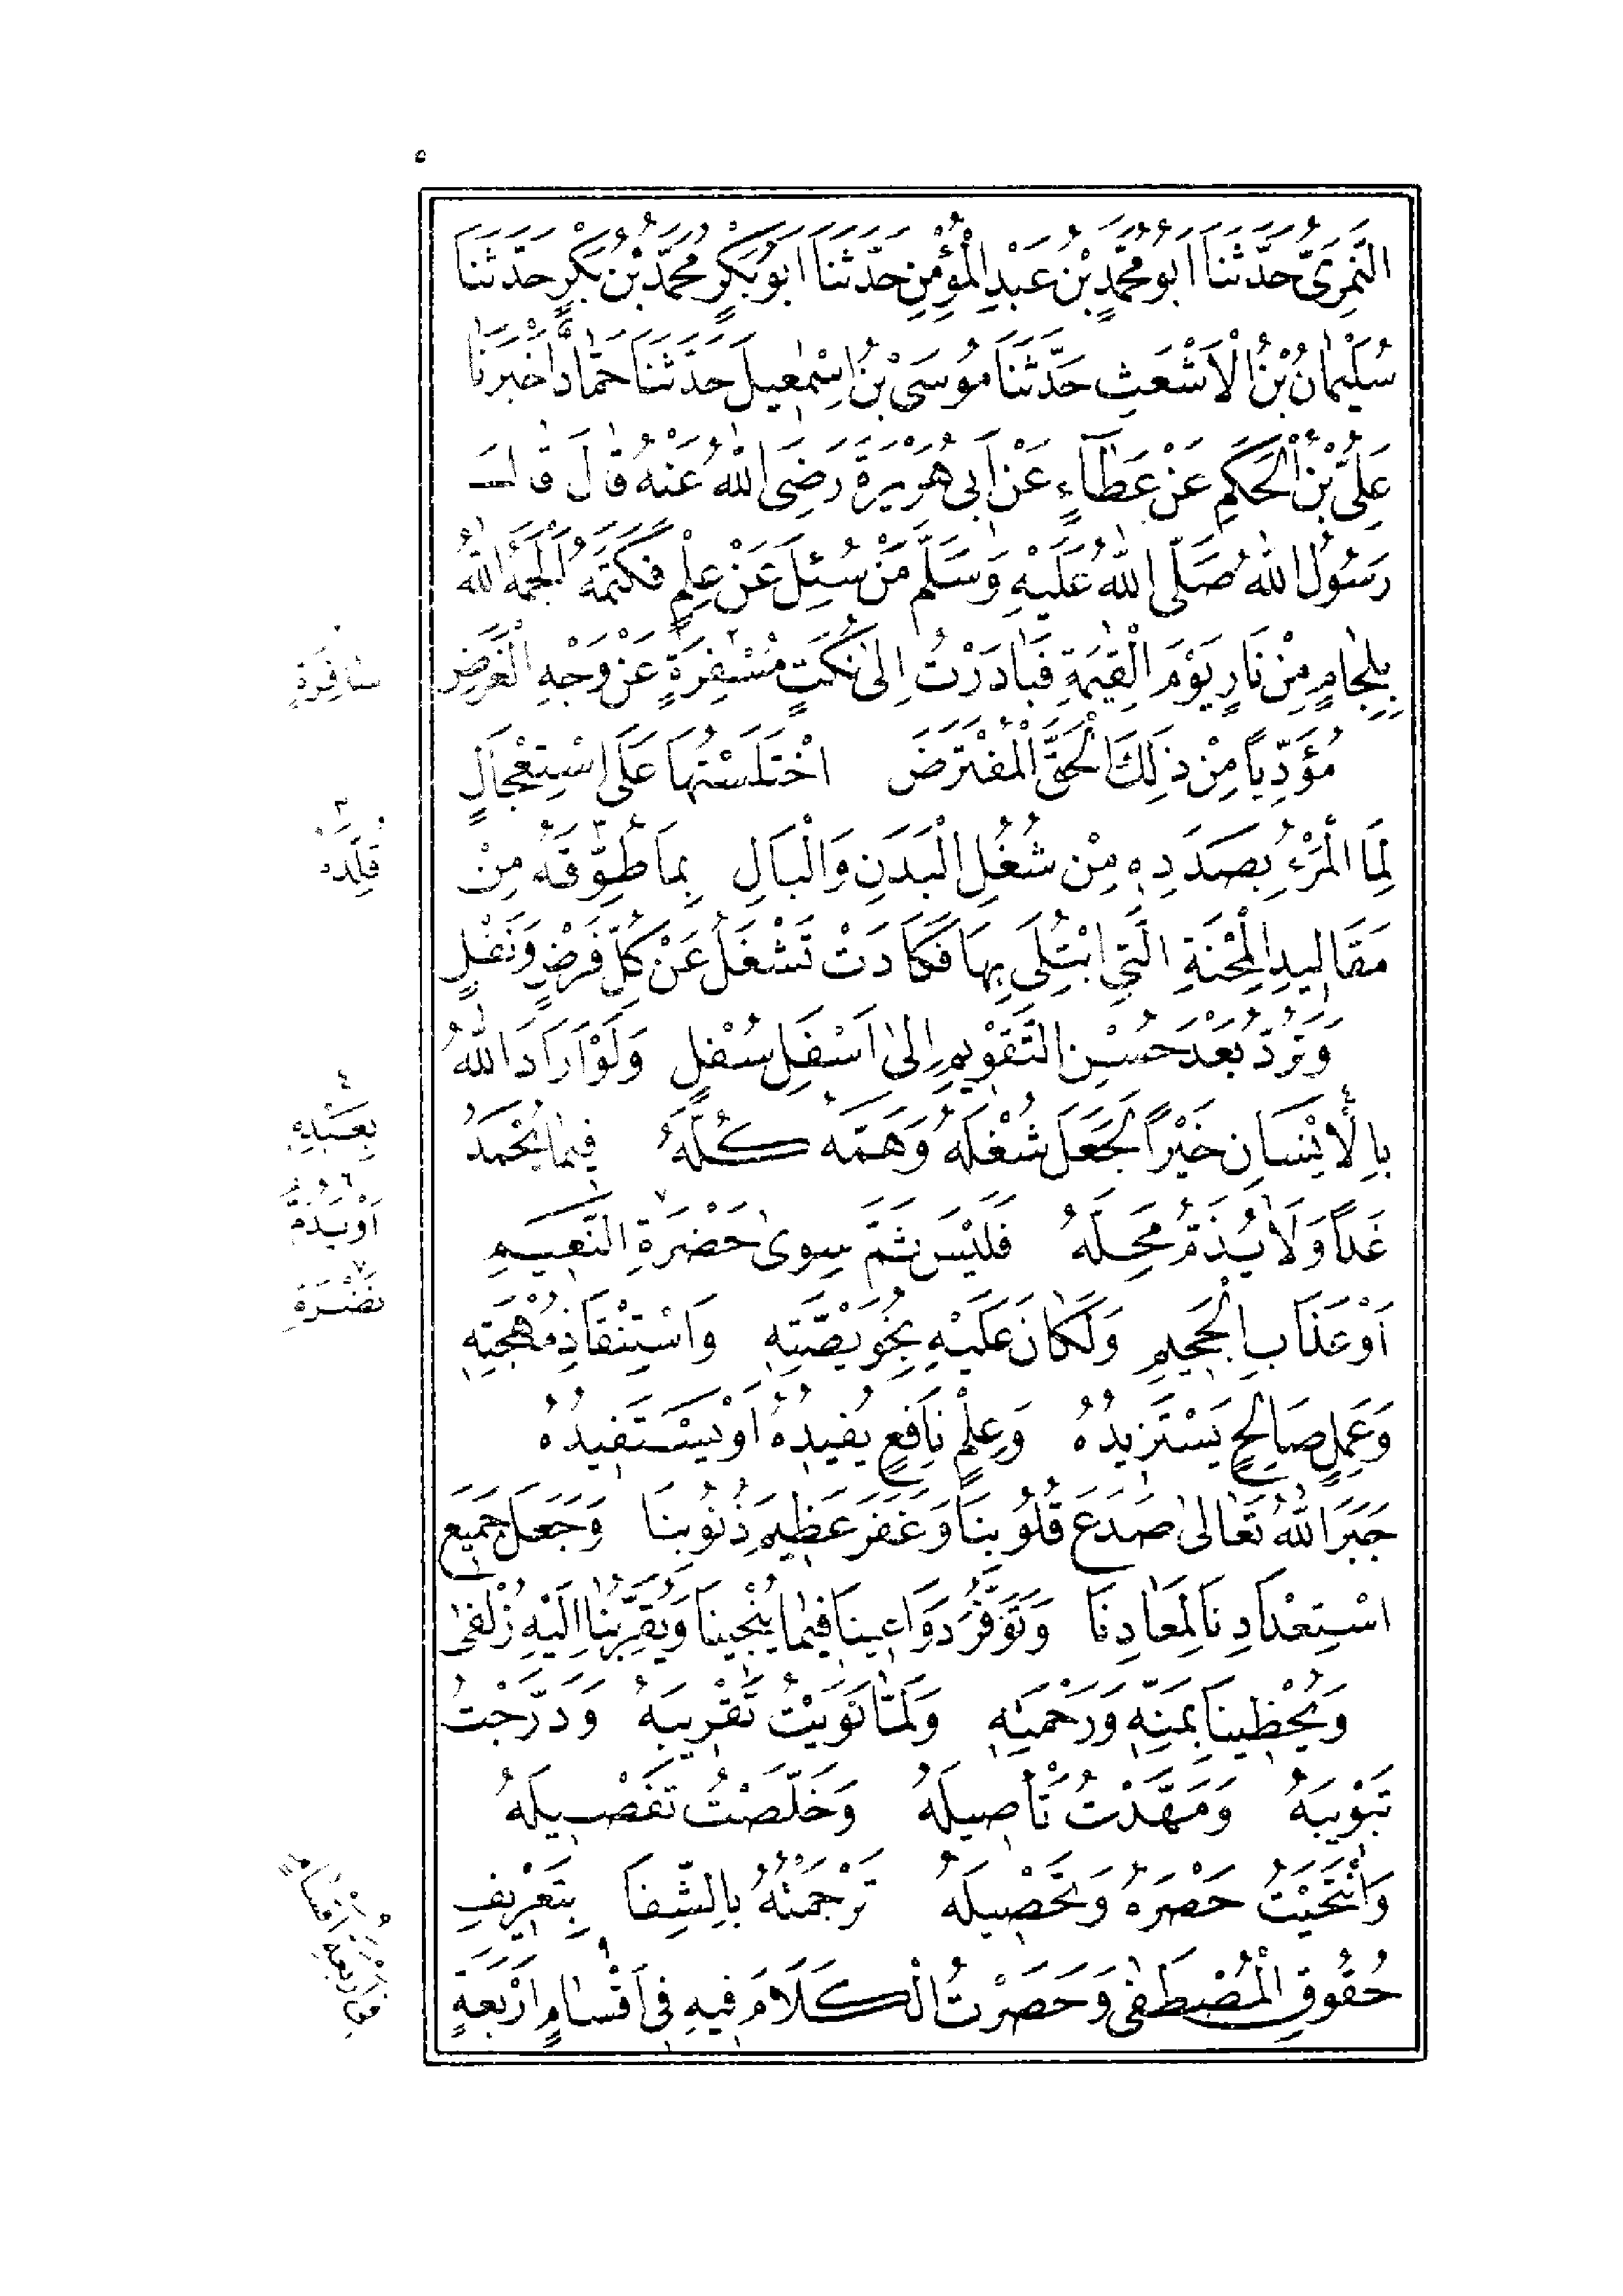 ٥
النَّمَرِىُّ حَدَّثَنَا اَبُو مُحَمَّدِ بْنُ عَبْدِ الْمُؤْمِنِ حَدَّثَنَا اَبُو بَكْرٍ مُحَمَّدُ بْنُ بَكْرٍ حَدَّثَنَا
سُلَيْمٰانُ بْنُ الْاَشْعَثِ حَدَّثَنَا مُوسَى بْنُ اِسْمٰعِيلَ حَدَّثَنَا حَمَّادٌ اَخْبَرَنَا
عَلِىُّ بْنُ الْحَكَمِ عَنْ عَطَآءٍ عَنْ اَبِى هُرَيْرَةَ رَضِىَ اللّٰهُ عَنْهُ قٰالَ قٰالَ
رَسُولُ اللّٰهِ صَلَّى اللّٰهُ عَلَيْهِ وَسَلَّمَ مَنْ سُئِلَ عَنْ عِلْمٍ فَكَتَمَهُ اَلْجَمَهُ اللّٰهُ
بِلِجٰامٍ مِنْ نَارٍ يَوْمَ الْقِيٰمَةِ فَبَادَرْتُ اِلىٰ نُكَتٍ مُسْفِرَةٍ عَنْ وَجْهِ الْغَرَضِ
مُؤَدِّيًا مِنْ ذٰلِكَ الْحَقَّ الْمُفْتَرَضَ اخْتَلَسْتُهَا عَلَى اسْتِعْجَالٍ
لِمَا الْمَرْءُ بِصَدَدِهِ مِنْ شُغُلِ الْبَدَنِ وَالْبَالِ بِمَا طُوِّقَهُ مِنْ
مَقَالِيدِ الْمِحْنَةِ الَّتِى ابْتُلِىَ بِهَا فَكَادَتْ تَشْغَلُ عَنْ كُلِّ فَرْضٍ وَنَفْلٍ
وَتَرُدُّ بَعْدَ حُسْنِ التَّقْوِيمِ اِلىٰ اَسْفَلِ سُفْلٍ وَلَوْ اَرَادَ اللّٰهُ
بِالْاِنْسَانِ خَيْرًا لَجَعَلَ شُغْلَهُ وَهَمَّهُ كُلَّهُ فِيمَا يُحْمَدُ
غَدًا وَلَا يُذَمُّ مَحِلُّهُ فَلَيْسَ ثَمَّ سِوىٰ حَضْرَةِ النَّعِيمِ
اَوْ عَذَابِ الْجَحِيمِ وَلَكَانَ عَلَيْهِ بِخُوَيْصَّتِهِ وَاسْتِنْقَاذِ مُهْجَتِهِ
وَعَمَلٍ صَالِحٍ يَسْتَزِيدُهُ وَعِلْمٍ نَافِعٍ يُفِيدُهُ اَوْ يَسْتَفِيدُهُ
جَبَرَ اللّٰهُ تَعٰالىٰ صَدَعَ قُلُوبِنَا وَغَفَرَ عَظِيمَ ذُنُوبِنَا وَجَعَلَ جَمِيعَ
اسْتِعْدَادِنَا لِمَعَادِنَا وَتَوَفُّرَ دَوَاعِينَا فِيمَا يُنْجِينَا وَيُقَرِّبُنَا اِلَيْهِ زُلْفىٰ
وَيُحْظِينَا بِمَنِّهِ وَرَحْمَتِهِ وَلَمَّا نَوَيْتُ تَقْرِيبَهُ وَدَرَّجْتُ
تَبْوِيبَهُ وَمَهَّدْتُ تَأْصِيلَهُ وَخَلَّصْتُ تَفْصِيلَهُ
وَانْتَحَيْتُ حَصْرَهُ وَتَحْصِيلَهُ تَرْجَمْتُهُ بِالشِّفَا بِتَعْرِيفِ
حُقُوقِ الْمُصْطَفٰى وَحَصَرْتُ الْكَلَامَ فِيهِ فِى اَقْسٰامٍ اَرْبَعَةٍ
سٰافِرَةٍ
٣
قُلِّدَهُ
٤
بِعَبْدِهِ
٦
اَوْ يُذَمُّ
٧
نَضْرَةِ
فِى اَرْبَعَةِ اَقْسٰامٍ